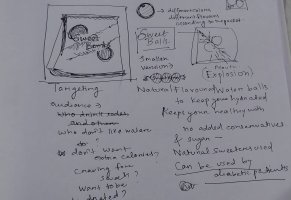 Sweet
Bomb
different colors
different flavours
according to request
Sweet
Balls
Smaller
version
(Explosion)
Targeting
audience →
Who don't
Who don't like water
to
?
don't want
extra calories?
Craving for
sweets?
Want to be
Natural Flavoured Water balls
to keep you hydrated
Keeps you healthy with
no added conservatives
& sugar —
Natural sweeteners used
Can be used by
diabetic patients